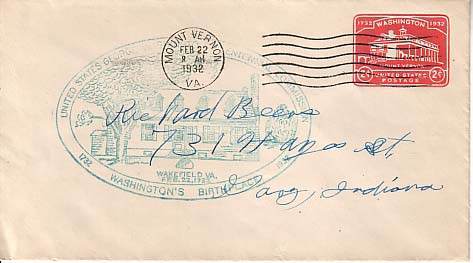 MOUNT VERNON
FEB 22
8 AM
1932
VA.
1732 WASHINGTON 1932
MOUNT VERNON
2¢ UNITED STATES 2¢
POSTAGE
UNITED STATES GEORGE
1732
WAKEFIELD VA.
FEB. 22, 1732
WASHINGTON'S BIRTHPLACE
Richard Beers
731 Hayes St,
Gary, Indiana